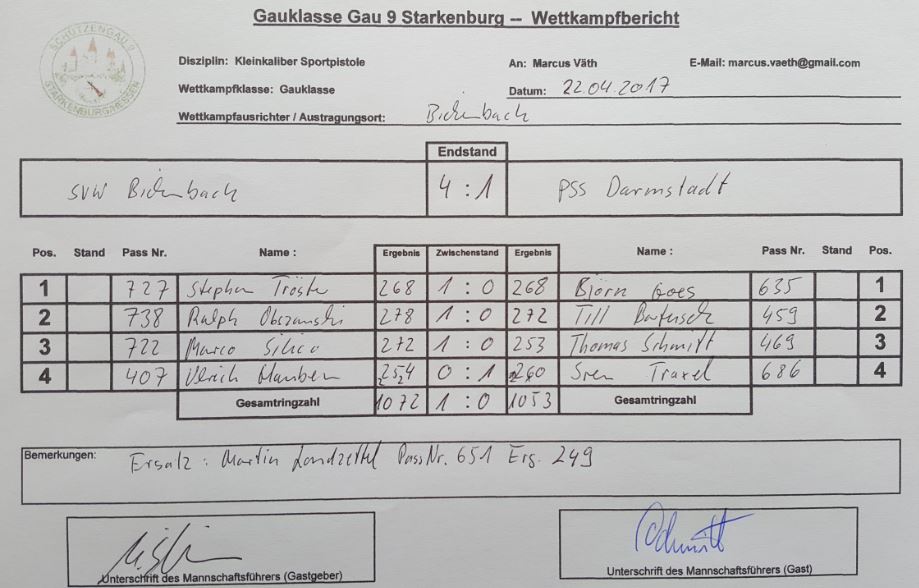 Gauklasse Gau 9 Starkenburg -- Wettkampfbericht
SCHÜTZENGAU 9
STARKENBURG/HESSEN
Disziplin: Kleinkaliber Sportpistole An: Marcus Väth E-Mail: marcus.vaeth@gmail.com
Wettkampfklasse: Gauklasse Datum: 22.04.2017
Wettkampfausrichter / Austragungsort: Bickenbach
Endstand
SVW Bickenbach 4 : 1 PSS Darmstadt
Pos. Stand Pass Nr. Name : Ergebnis Zwischenstand Ergebnis Name : Pass Nr. Stand Pos.
1 727 Stephan 268 1 : 0 268 Björn Goes 635 1
2 738 Ralph 278 1 : 0 272 Till 459 2
3 722 Marco 272 1 : 0 253 Thomas Schmitt 469 3
4 407 Ulrich 254 0 : 1 260 Traxel 686 4
Gesamtringzahl 1072 1 : 0 1053 Gesamtringzahl
Bemerkungen: Ersatz : Martin Landzettel Pass Nr. 651 Erg. 249
Unterschrift des Mannschaftsführers (Gastgeber) Unterschrift des Mannschaftsführers (Gast)